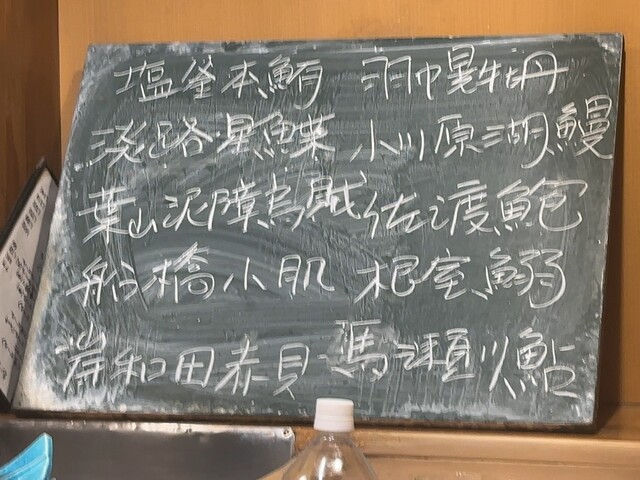 塩釜本鮪 羽幌牡丹
淡路星鰈 小川原湖鰻
葉山泥障烏賊 佐渡鮑
船橋小肌 根室鰯
岸和田赤貝 馬瀬川鮎